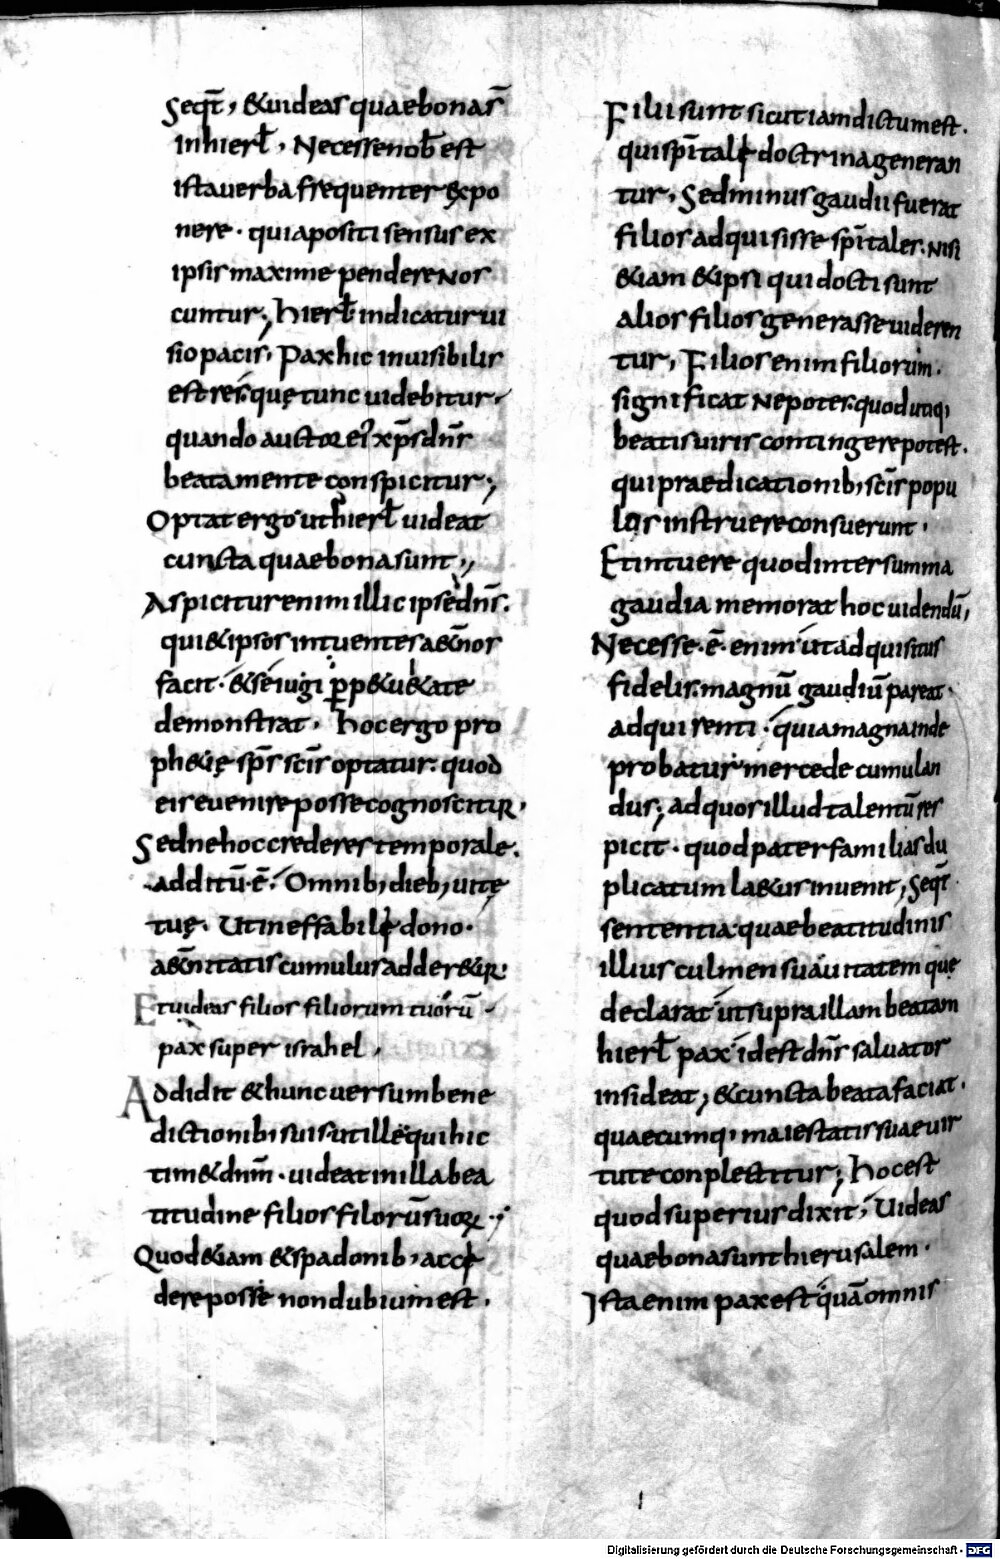 Seqt̄, &uideas quaebonas̄
inhierl̄, Necessenob̄est
istauerbafrequenterexpo
nere· quiapositisensusex
ipsismaximependereNos
cuntur; hierl̄indicaturui
siopacis, Paxhicinuisibilis
estres·quętuncuidebitur,
quandoauctoreixp̄sdn̄s
beatamenteconspicitur;
Optatergouthierl̄uideat
cunctaquaebonasunt;,
Aspiciturenimillicipsedn̄s·
qui&ipsosintuentesa&nos
facit·&seiugi p̱p&u&ate
demonstrat, hocergopro
ph&ięsp̄sscīsoptatur·quod
eiseuenireposse cognoscitur,
Sednehoccrederestemporale·
additū·ē·Omnib;dieb;uitę
tuę· Utineffabilędono·
a&nitatiscumulusadder&ur·
Etuideas filios filiorum tuorū·
pax super israhel,
Addidit&huncuersumbene
dictionibisuisutillequihic
tim&dnm̄·uideatinillabea
titudinefiliosfilorūsuor·;
Quod&iam&spadonib;accę
dereposse nondubiumest,
Filiisuntsicutiamdictumest·
quispītalędoctrinageneran
tur, Sedminusgaudiifuerat
filiosadquisissespītales·Nisi
&iam&ipsiquidoctisunt
aliosfiliosgenerasseuideren
tur, Filiosenimfiliorum·
significatNepotes·quodutiq;
beatisuiriscontingerepotest·
quipraedicationib;scīspopu
losinstruereconsuerunt·
Etintuerequodintersumma
gaudiamemorathocuidendū,
Necesse·ē·enimutadquisitus
fidelis·magnūgaudiūpareat·
adquirenti·quiamagnainde
probaturmercedecumulan
dus; adquosilludtalentūres
picit·quodpaterfamiliasdu
plicatumla&usinuenit, Seqt̄
sententia·quaebeatitudinis
illiusculmensuauitatemquę
declarat utsupraillambeatam
hierl̄pax idestdn̄ssaluator
insideat, &cunctabeatafaciat·
quaecumq;maiestatissuaeuir
tuteconplectitur; hocest
quodsuperiusdixit, Uideas
quaebonasunthierusalem·
Istaenimpaxestquāomnis
Digitalisierung gefördert durch die Deutsche Forschungsgemeinschaft - DFG